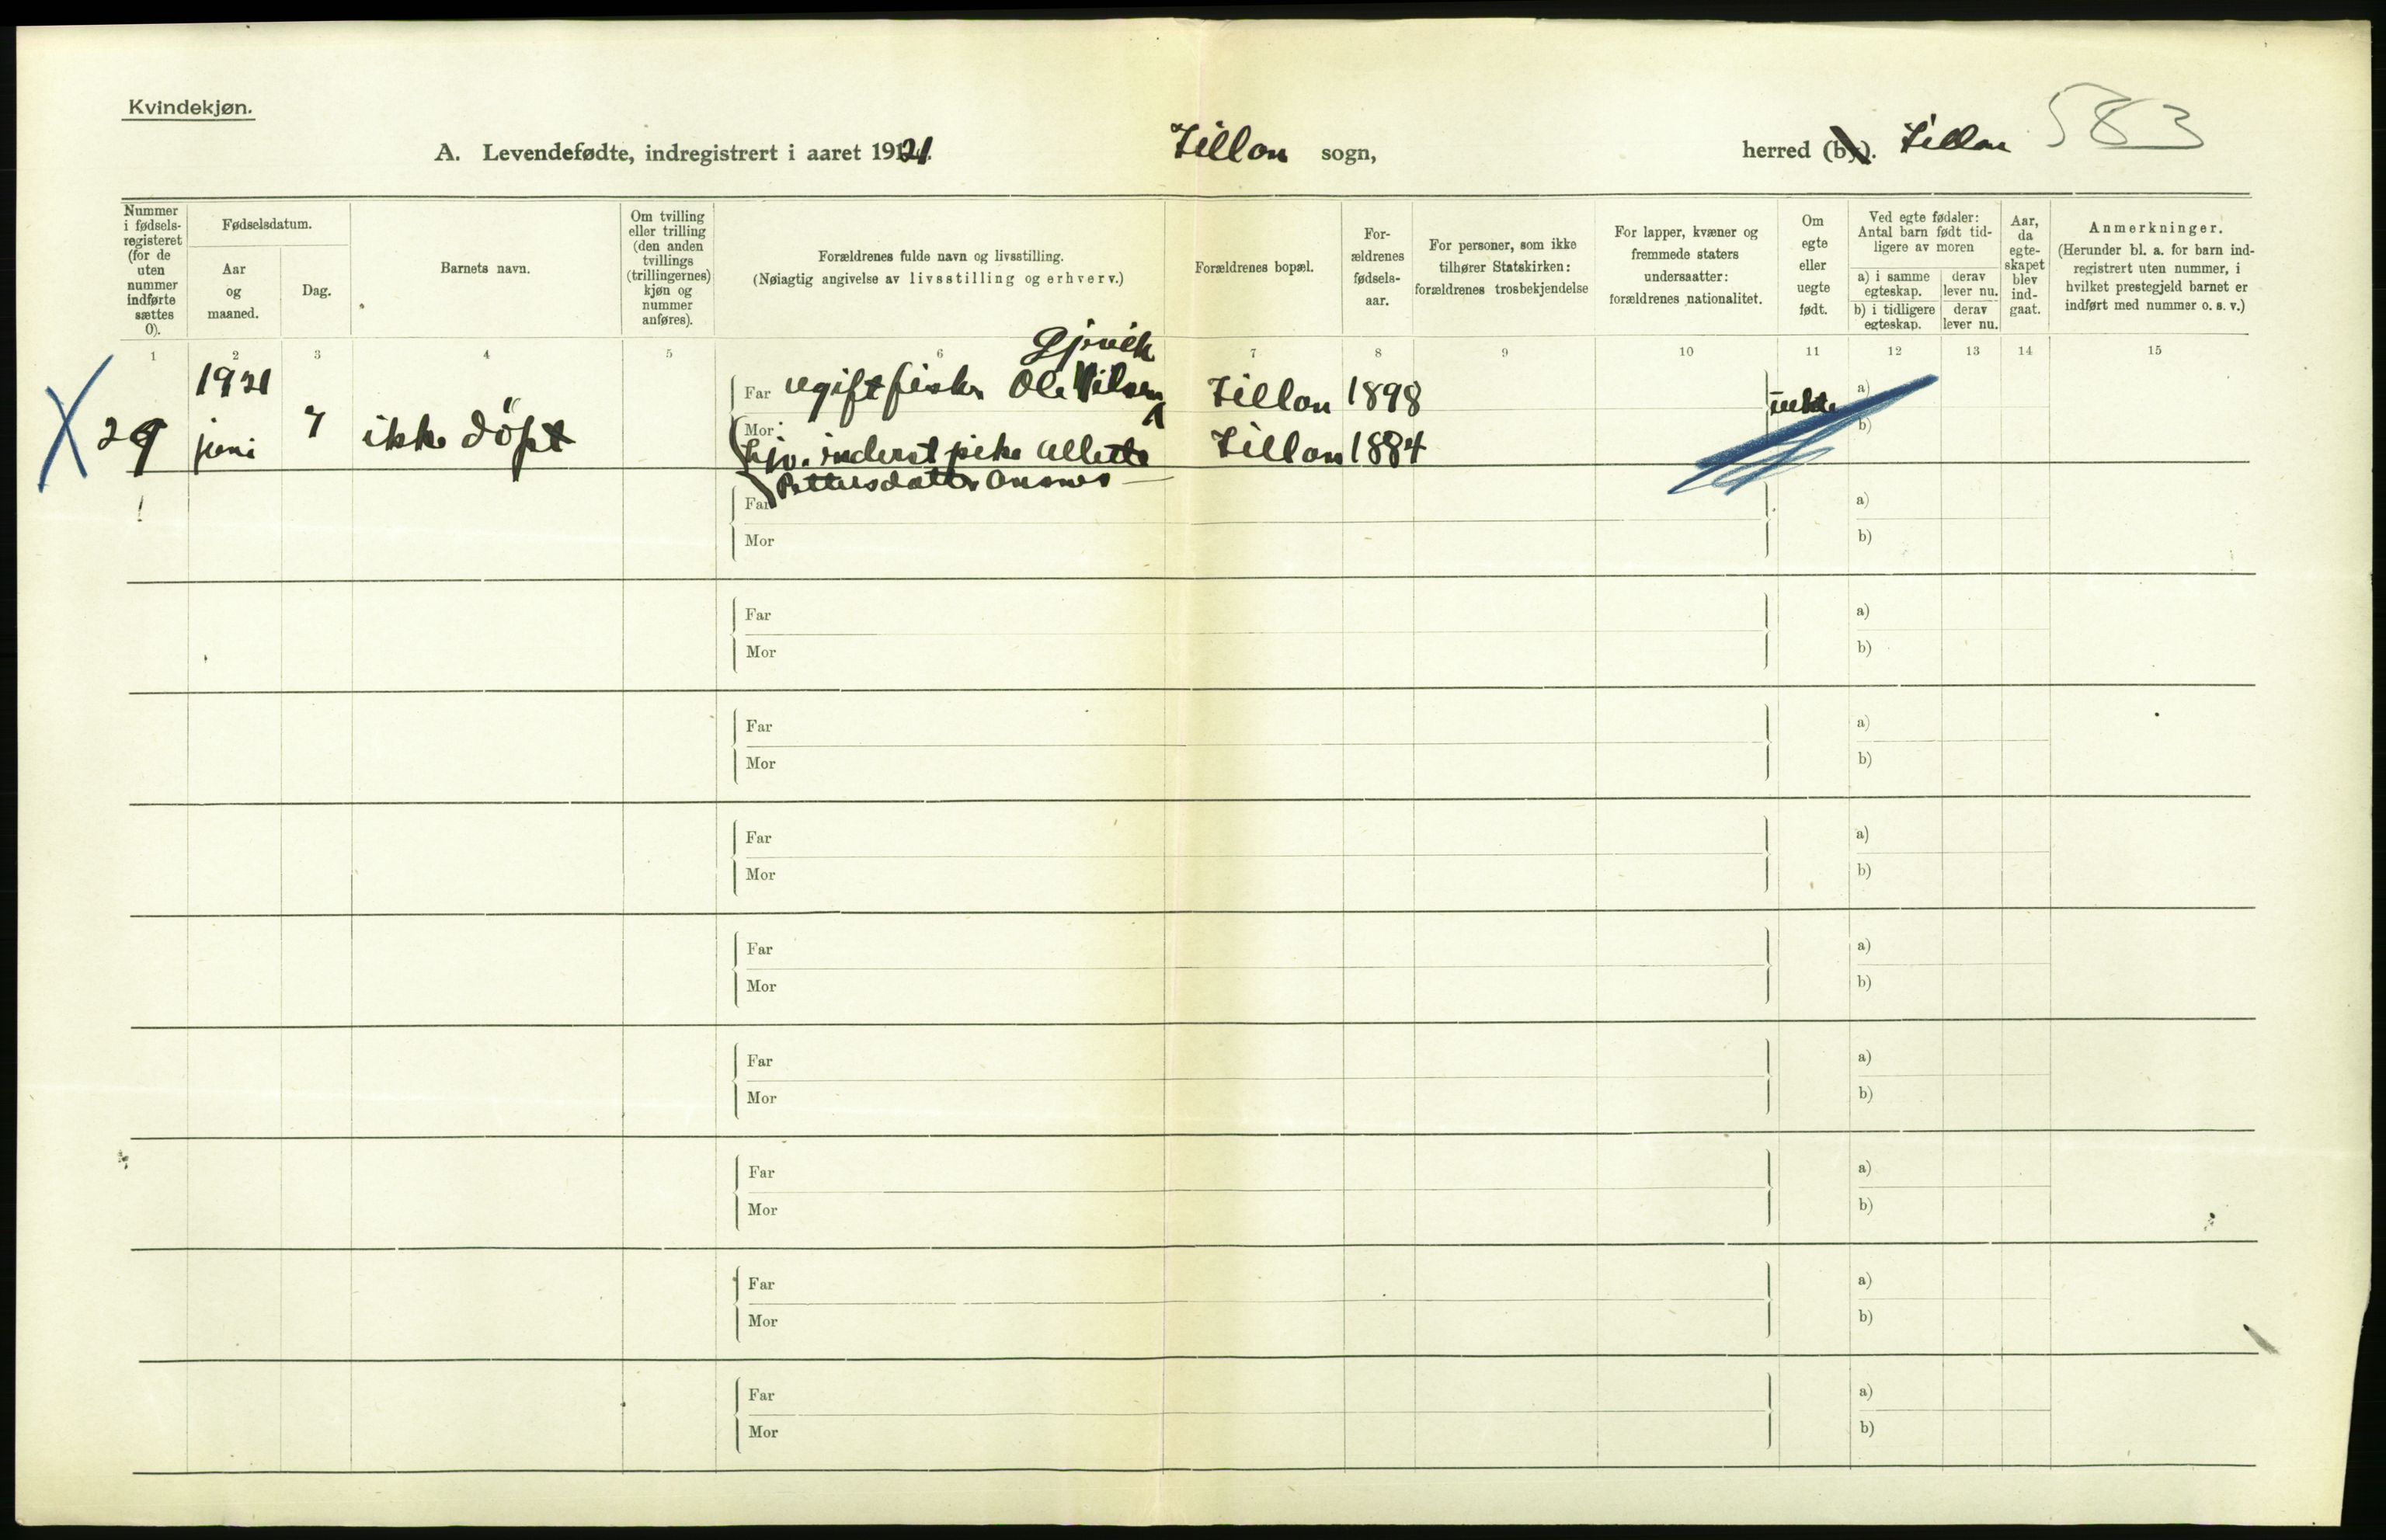 Kvindekjøn.
583
A. Levendefødte, indregistrert i aaret 1921. Fillan sogn, herred (by). Fillan
Nummer i fødsels-registeret (for de uten nummer indførte sættes 0).
Fødselsdatum.
Aar og maaned.
Dag.
Barnets navn.
Om tvilling eller trilling (den anden tvillings (trillingernes) kjøn og nummer anføres).
Forældrenes fulde navn og livsstilling.
(Nøiagtig angivelse av livsstilling og erhverv.)
Forældrenes bopæl.
For-ældrenes fødsels-aar.
For personer, som ikke tilhører Statskirken: forældrenes trosbekjendelse
For lapper, kvæner og fremmede staters undersaatter: forældrenes nationalitet.
Om egte eller uegte født.
Ved egte fødsler: Antal barn født tid-ligere av moren
a) i samme egteskap.
derav lever nu.
b) i tidligere egteskap.
derav lever nu.
Aar, da egte-skapet blev ind-gaat.
Anmerkninger.
(Herunder bl. a. for barn ind-registrert uten nummer, i hvilket prestegjeld barnet er indført med nummer o. s. v.)
1 2 3 4 5 6 7 8 9 10 11 12 13 14 15
X 29 1921 juni 7 ikke döpt
Far ugift fisker Ole Nilsen Fillan 1898 uekte a)
Mor inderst pike Fillan 1884 b)
Pettersdatter
Far a)
Mor b)
Far a)
Mor b)
Far a)
Mor b)
Far a)
Mor b)
Far a)
Mor b)
Far a)
Mor b)
Far a)
Mor b)
Far a)
Mor b)
Far a)
Mor b)